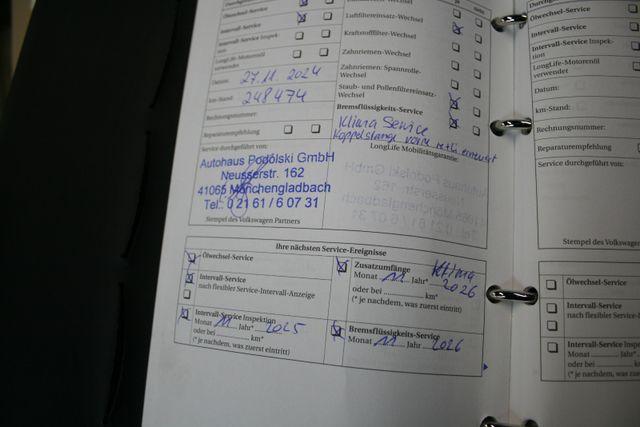 Ölwechsel-Service
Intervall-Service
Intervall-Service Inspek-
tion
LongLife-Motorenöl
verwendet
Datum: 27.11.2024
km-Stand: 248474
Rechnungsnummer:
Reparaturempfehlung
Service durchgeführt von:
Autohaus Podolski GmbH
Neusserstr. 162
41065 Mönchengladbach
Tel.: 0 21 61 / 6 07 31
Stempel des Volkswagen Partners
Luftfiltereinsatz-Wechsel
Kraftstofffilter-Wechsel
Zahnriemen-Wechsel
Zahnriemen: Spannrolle-
Wechsel
Staub- und Pollenfiltereinsatz-
Wechsel
Bremsflüssigkeits-Service
Klima Service
Koppelstange vorne re+li erneuert
LongLife Mobilitätsgarantie:
Ihre nächsten Service-Ereignisse
Ölwechsel-Service
Intervall-Service
nach flexibler Service-Intervall-Anzeige
Intervall-Service Inspektion
Monat 11 Jahr* 2025
oder bei ............ km*
(* je nachdem, was zuerst eintritt)
Zusatzumfänge Klima
Monat 11 Jahr* 2026
oder bei ............ km*
(* je nachdem, was zuerst eintritt)
Bremsflüssigkeits-Service
Monat 11 Jahr 2026
Ölwechsel-Service
Intervall-Service
Intervall-Service Inspek-
tion
LongLife-Motorenöl
verwendet
Datum:
km-Stand:
Rechnungsnummer:
Reparaturempfehlung
Service durchgeführt von:
Stempel des Volkswagen
Ölwechsel-Service
Intervall-Service
nach flexibler Service-I
Intervall-Service Inspek
Monat ............ Jahr*
oder bei ............
(* je nachdem, was z